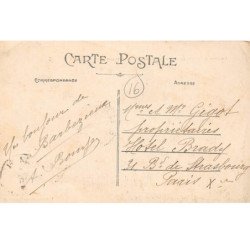 CARTE POSTALE
CORRESPONDANCE
ADRESSE
16
Un bonjour de
Barbezieux
Mr et Mme Gigot
propriétaires
Hôtel Brady
31 Bd de Strasbourg
Paris X